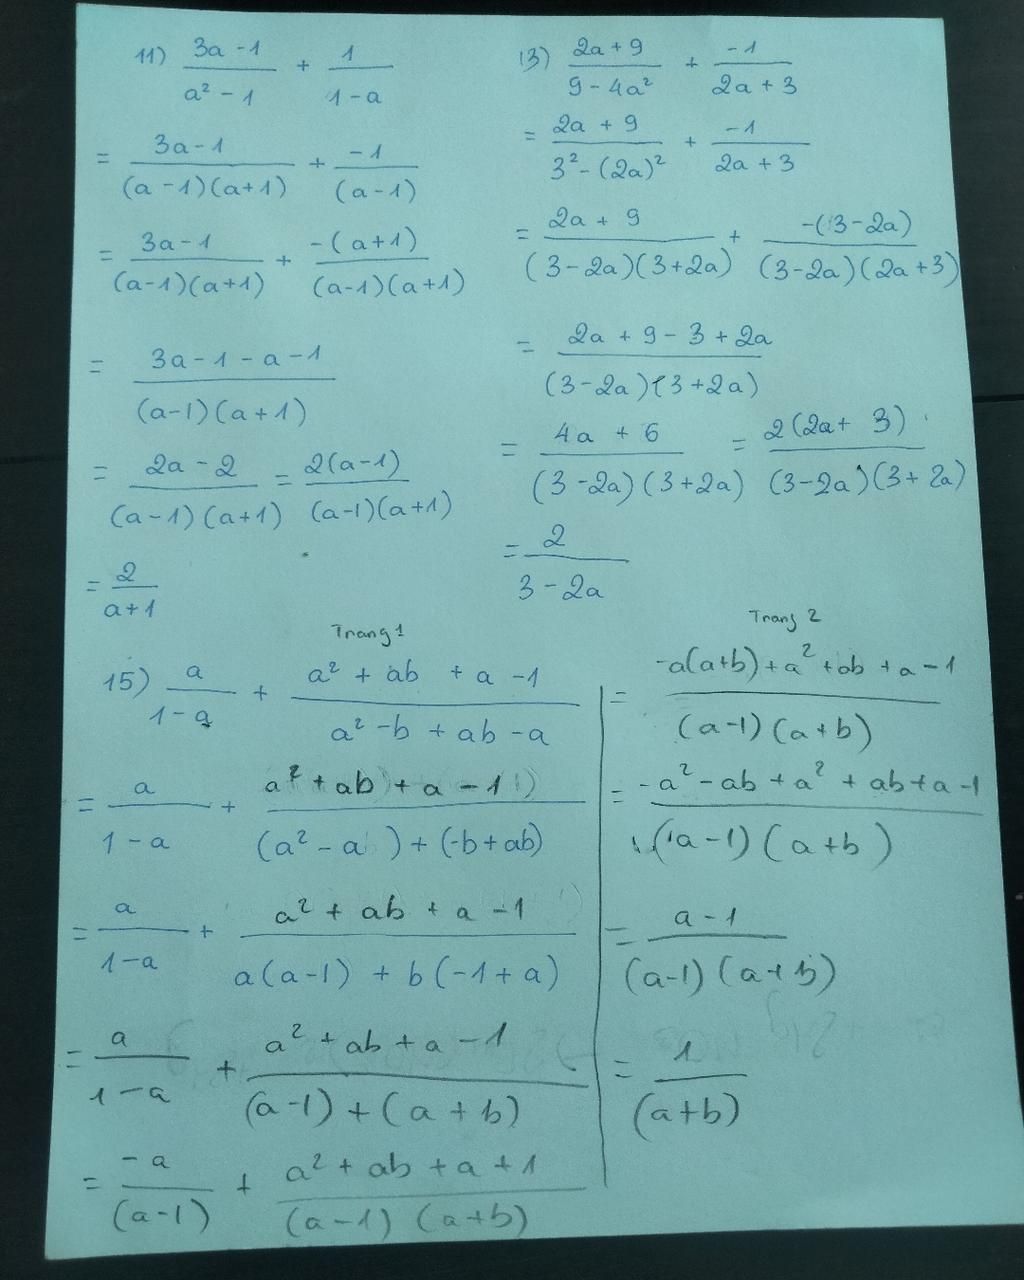 11) (3a - 1)/(a² - 1) + 1/(1 - a)
= (3a - 1)/((a - 1)(a + 1)) + -1/(a - 1)
= (3a - 1)/((a - 1)(a + 1)) + -(a + 1)/((a - 1)(a + 1))
= (3a - 1 - a - 1)/((a - 1)(a + 1))
= (2a - 2)/((a - 1)(a + 1)) = 2(a - 1)/((a - 1)(a + 1))
= 2/(a + 1)
13) (2a + 9)/(9 - 4a²) + -1/(2a + 3)
= (2a + 9)/(3² - (2a)²) + -1/(2a + 3)
= (2a + 9)/((3 - 2a)(3 + 2a)) + -(3 - 2a)/((3 - 2a)(2a + 3))
= (2a + 9 - 3 + 2a)/((3 - 2a)(3 + 2a))
= (4a + 6)/((3 - 2a)(3 + 2a)) = 2(2a + 3)/((3 - 2a)(3 + 2a))
= 2/(3 - 2a)
Trang 1
15) a/(1 - a) + (a² + ab + a - 1)/(a² - b + ab - a)
= a/(1 - a) + (a² + ab + a - 1)/((a² - a) + (-b + ab))
= a/(1 - a) + (a² + ab + a - 1)/(a(a - 1) + b(-1 + a))
= a/(1 - a) + (a² + ab + a - 1)/((a - 1) + (a + b))
= -a/(a - 1) + (a² + ab + a + 1)/((a - 1)(a + b))
Trang 2
= (-a(a + b) + a² + ab + a - 1)/((a - 1)(a + b))
= (-a² - ab + a² + ab + a - 1)/((a - 1)(a + b))
= (a - 1)/((a - 1)(a + b))
= 1/(a + b)